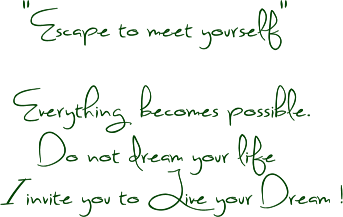 "Escape to meet yourself"
Everything becomes possible.
Do not dream your life
I invite you to Live your Dream !